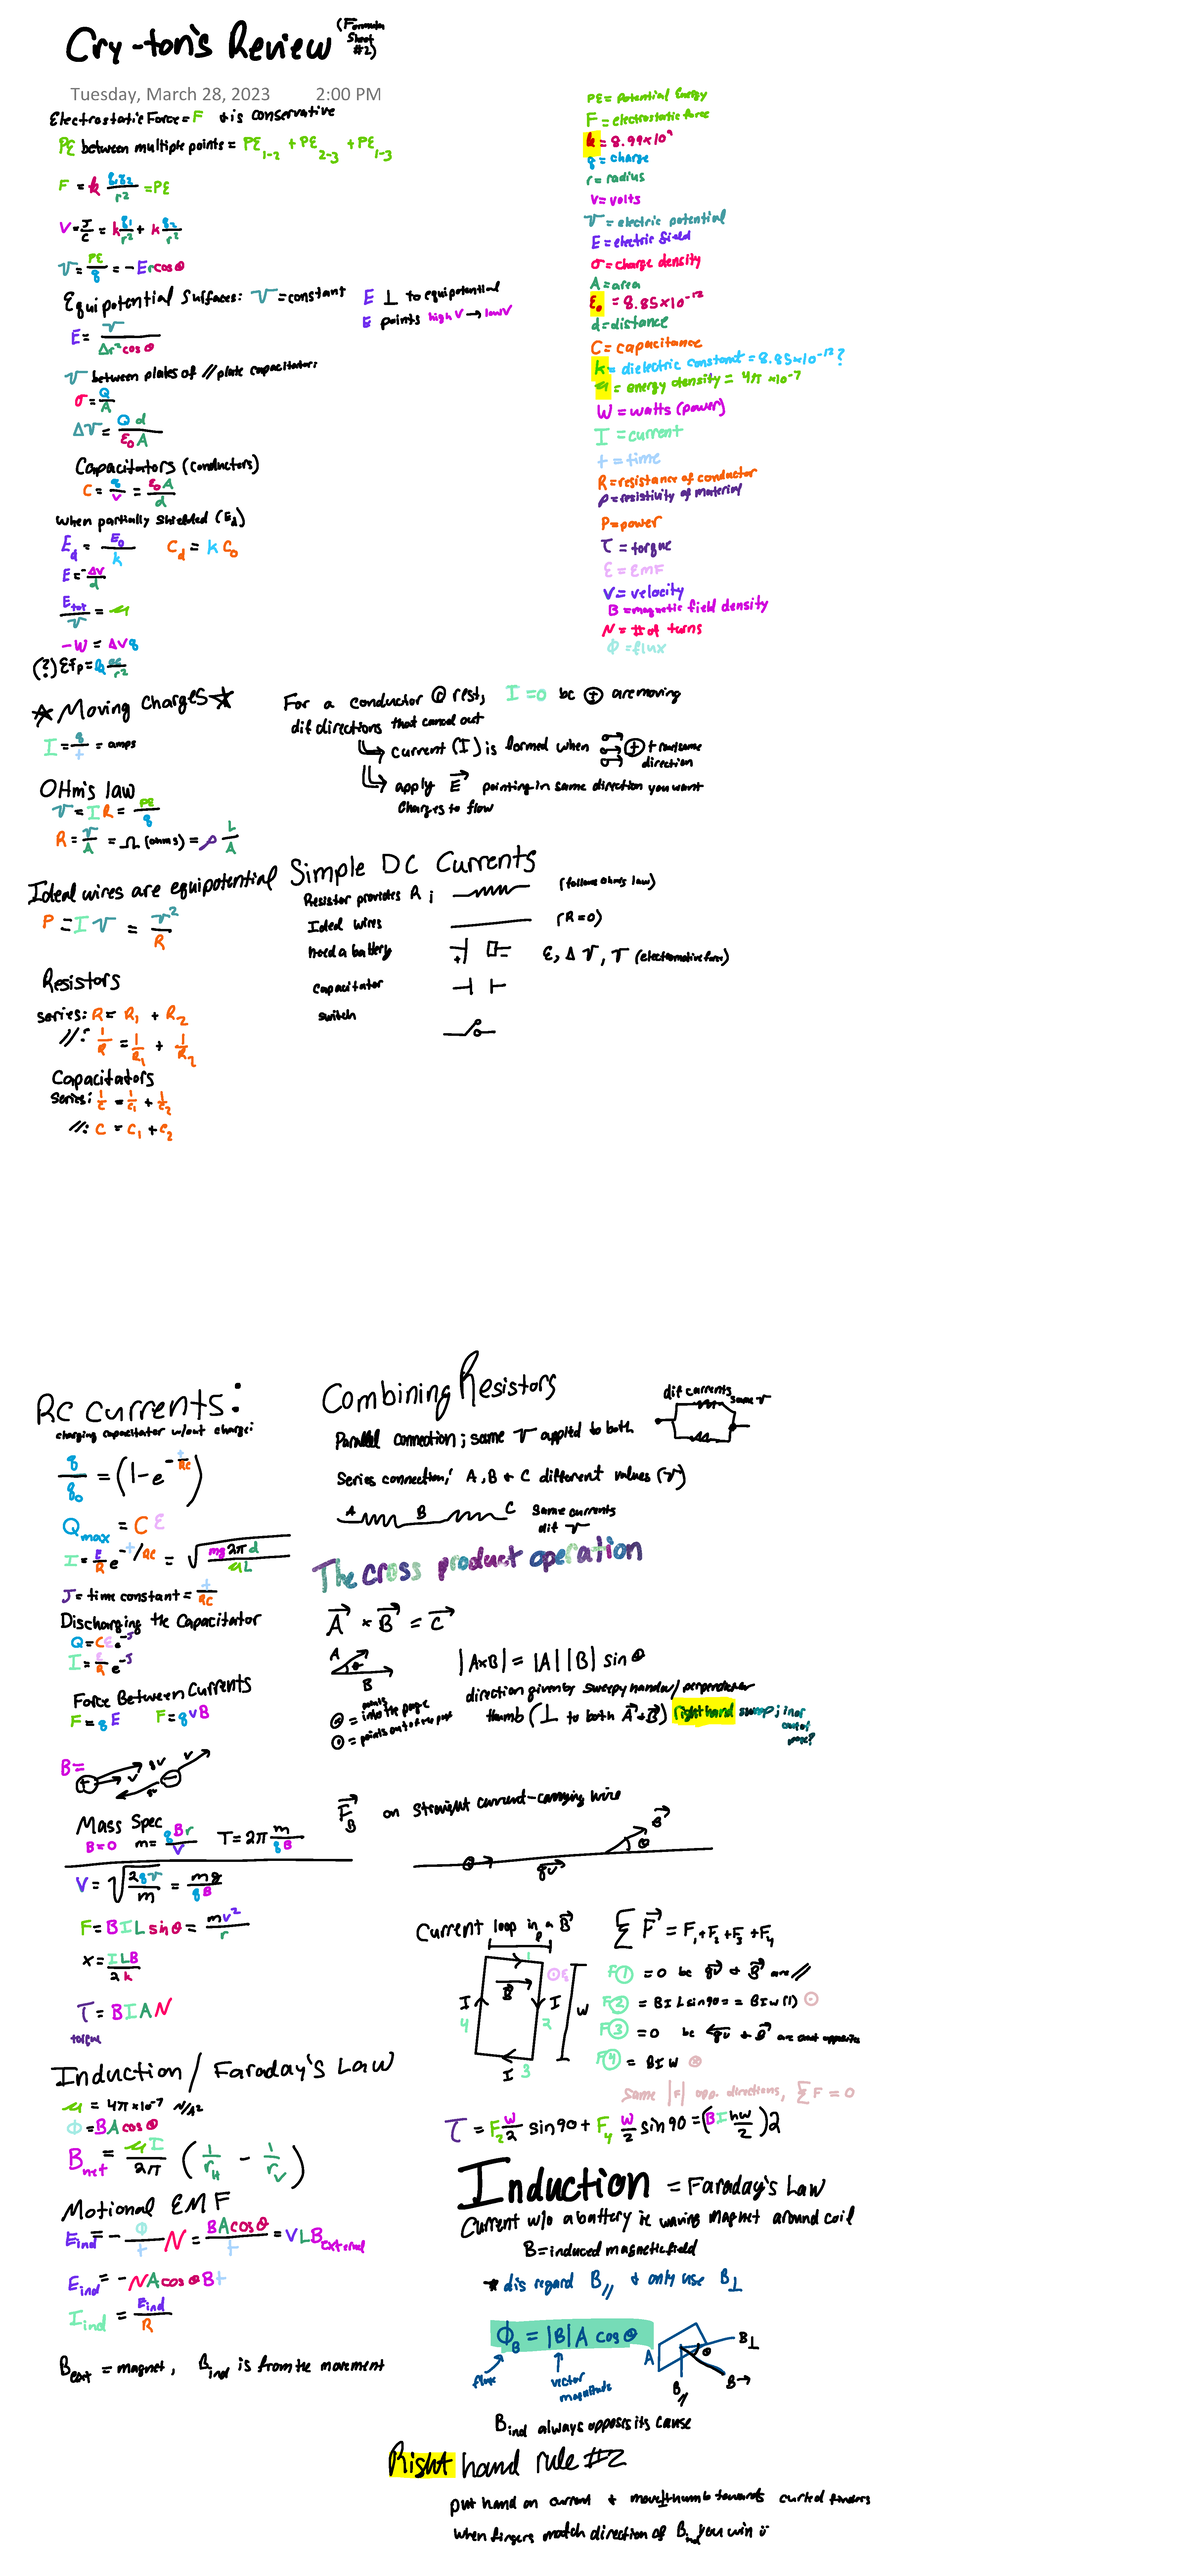 Cry-ton's Review (Formula Sheet #2)
Tuesday, March 28, 2023 2:00 PM
Electrostatic Force = F + is conservative
PE between multiple points = PE1-2 + PE2-3 + PE1-3
F = k q1q2/r² = PE
V = J/C = k q1/r² + k q2/r²
V = PE/q = -Ercosθ
Equipotential Surfaces: V = constant
E ⊥ to equipotential
E points high V → low V
E = V/Δr²cosθ
V between plates of // plate capacitator:
σ = Q/A
ΔV = Qd/ε0A
Capacitators (conductors)
C = q/V = ε0A/d
when partially shielded (Ed)
Ed = E0/k Cd = kC0
E = -ΔV/d
Etot/V = μ
-W = ΔVq
PE = Potential Energy
F = electrostatic force
k = 8.99x10⁹
q = charge
r = radius
V = volts
V = electric potential
E = electric field
σ = charge density
A = area
ε0 = 8.85x10⁻¹²
d = distance
C = capacitance
k = dielectric constant = 8.85x10⁻¹²?
μ = energy density = 4π x10⁻⁷
W = watts (power)
I = current
t = time
R = resistance of conductor
ρ = resistivity of material
P = power
τ = torque
ε = EMF
V = velocity
B = magnetic field density
N = # of turns
Φ = flux
☆ Moving Charges ☆
I = q/t = amps
For a conductor @ rest, I = 0 bc ⊕ are moving
dif directions that cancel out
↳ current (I) is formed when ⊕ travel same direction
↳ apply E→ pointing in same direction you want
charges to flow
OHm's law
V = IR = PE/q
R = V/A = Ω (ohms) = ρ L/A
Ideal wires are equipotential
P = IV = V²/R
Simple DC Currents
Resistor provides R ; (follows Ohms law)
Ideal wires (R=0)
need a battery ε, ΔV, V (electromotive force)
Capacitator
switch
Resistors
series: R = R1 + R2
//: 1/R = 1/R1 + 1/R2
Capacitators
series: 1/C = 1/C1 + 1/C2
//: C = C1 + C2
RC currents:
charging capacitator w/out charge:
q/q0 = (1-e^-t/RC)
Qmax = Cε
I = ε/R e^-t/RC = √mg2πd/μL
J = time constant = t/RC
Discharging the Capacitator
Q = Cεe^-J
I = ε/R e^-J
Force Between Currents
F = qE F = qvB
B=
Mass Spec
B=0 m = qBr/V T = 2π m/qB
V = √2qV/m = mg/qB
F = BILsinθ = mv²/r
x = ILB/2k
τ = BIAN
torque
Combining Resistors
Parallel connection; same V applied to both
dif currents
same V
Series connection; A, B + C different values (V)
A B C same currents
dif V
The cross product operation
A→ × B→ = C→
A
θ
B
|A×B| = |A||B| sinθ
⊗ = points into the page
⊙ = points out of the page
thumb (⊥ to both A→ + B→) right hand sweep; in or out of page?
F→B on straight current-carrying wire
qv→ B→ θ
Current loop in a B→
I 1 2 3 4 B→ W
ΣF→ = F1 + F2 + F3 + F4
F① = 0 bc qv→ + B→ are //
F② = BILsin90 = = BIW(1) ⊙
F④ = BIW ⊗
Same |F| opp. directions, ΣF = 0
τ = F2 W/2 sin90 + F4 W/2 sin90 = (BI hW/2)2
Induction / Faraday's Law
μ = 4πx10⁻⁷ N/A²
Φ = BAcosθ
Bnet = μI/2π (1/rH - 1/rV)
Motional EMF
Eind = - Φ/t N = BAcosθ/t = VLBexternal
Eind = -NAcosθBt
Iind = Eind/R
Bext = magnet, Bind is from the movement
Induction = Faraday's Law
Current w/o a battery ie waving magnet around coil
B = induced magnetic field
* disregard B// + only use B⊥
ΦB = |B|A cosθ
flux
vector magnitude
A B⊥ θ B// B→
Bind always opposes its cause
Right hand rule #2
put hand on current + move thumb towards curled fingers
when fingers match direction of Bind you win